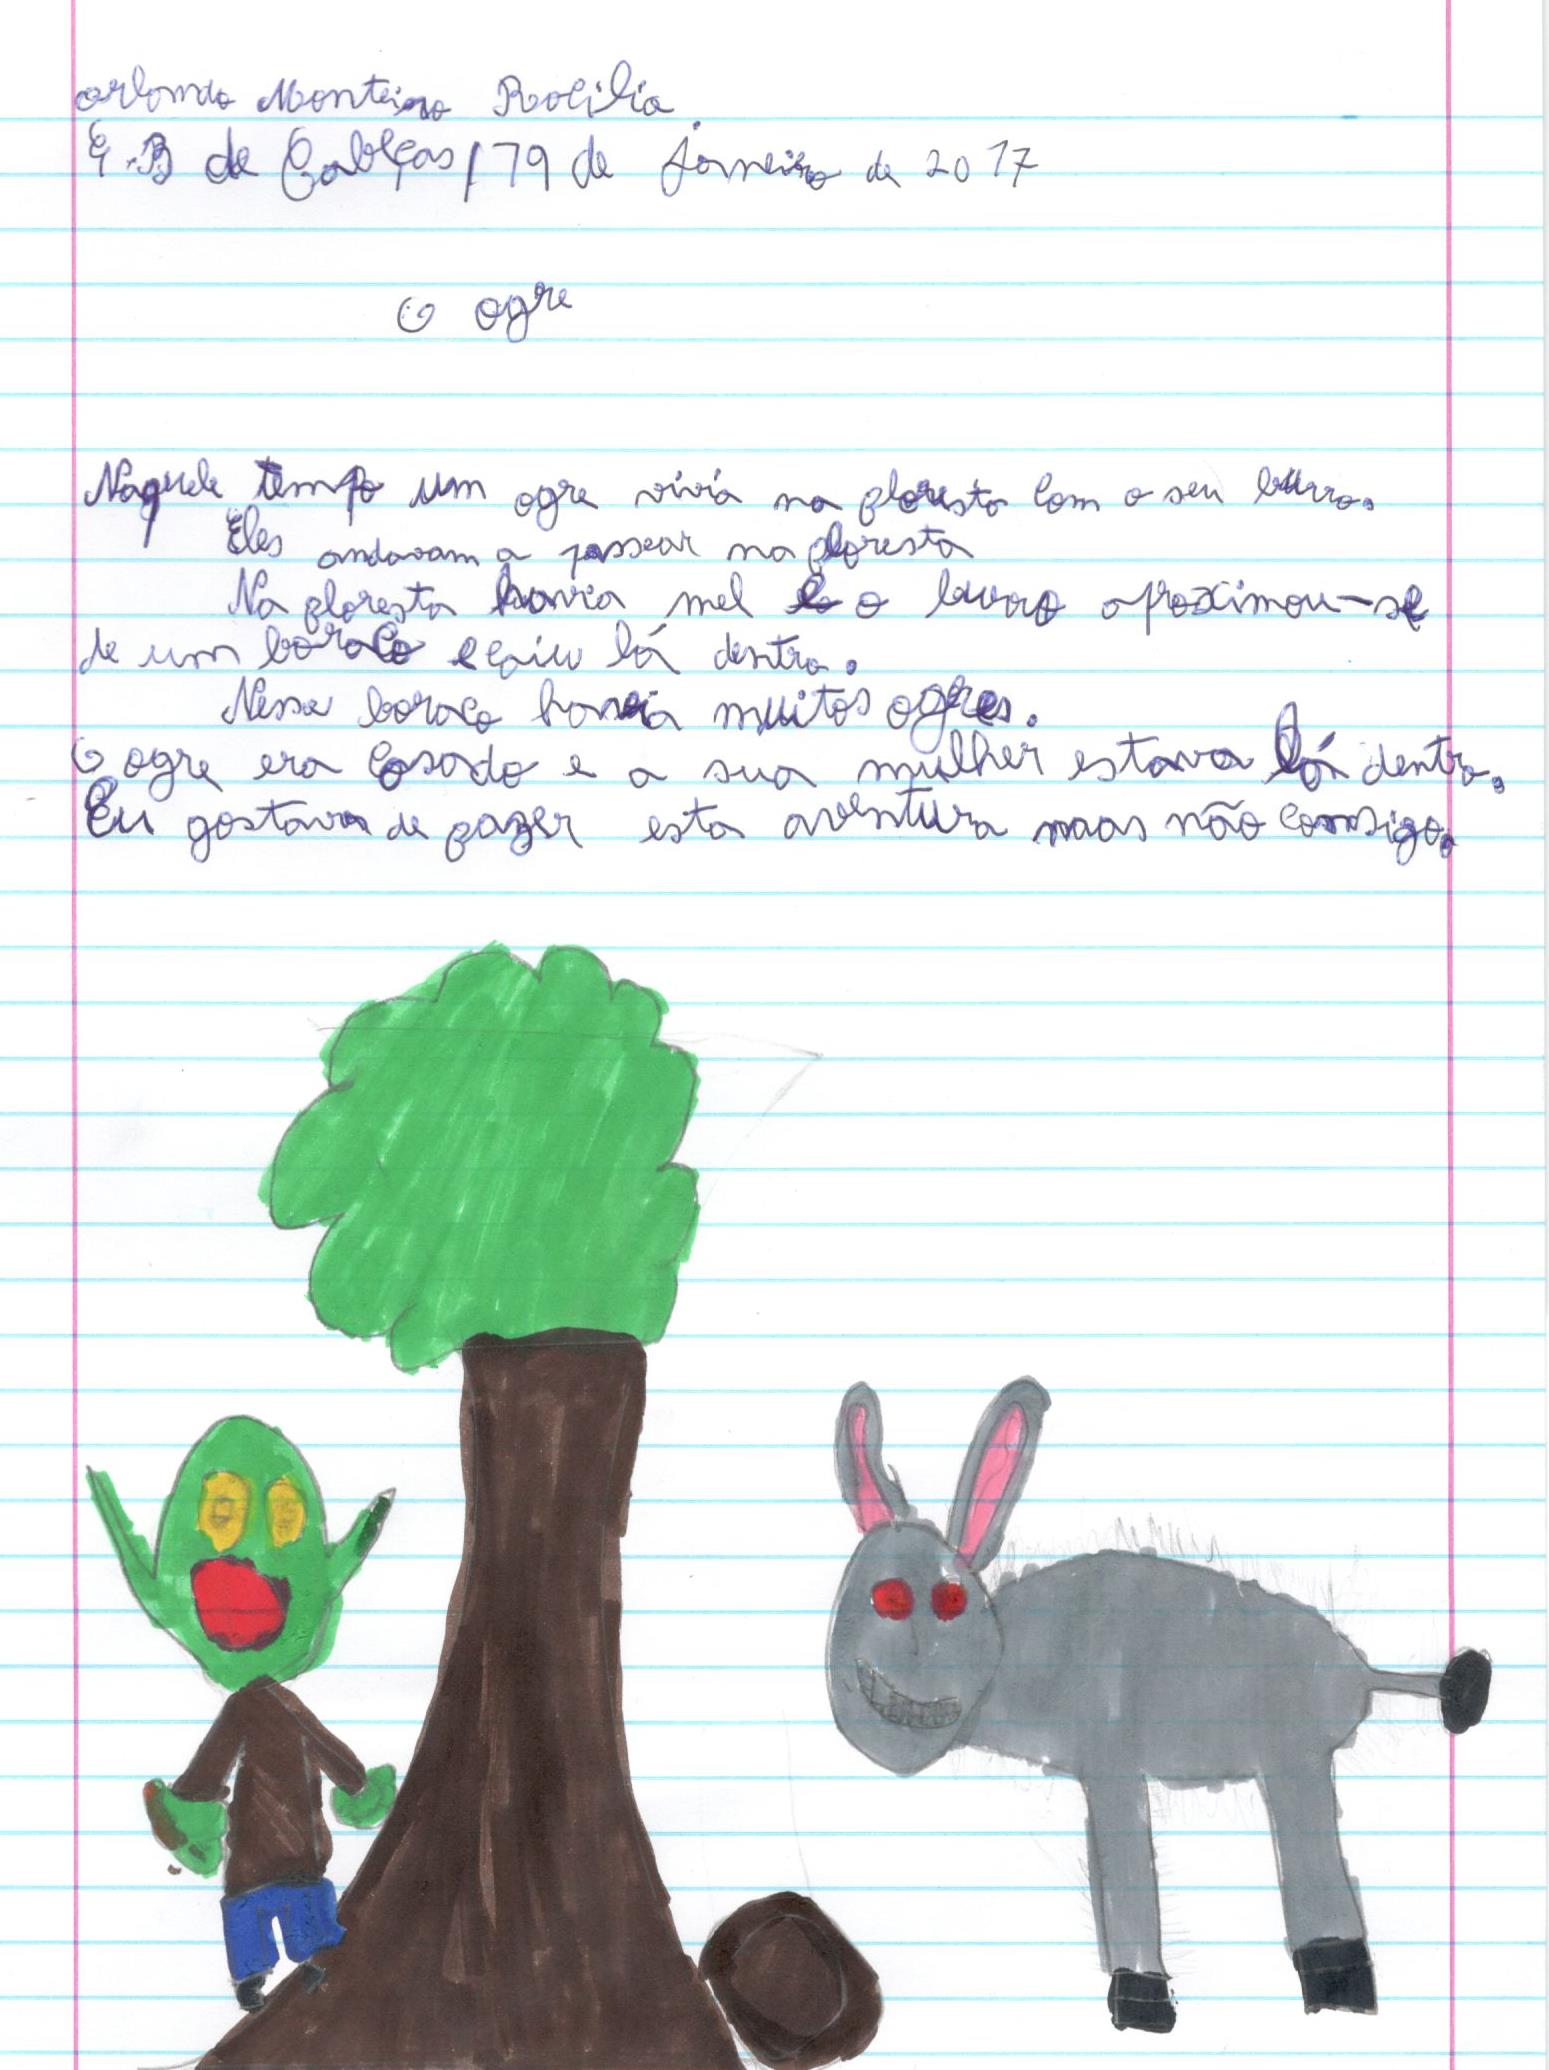 orlando Monteiro
E.B de Cabeças / 19 de janeiro de 2017
O ogre
Naquele tempo um ogre vivia na floresta com o seu burro.
Eles andavam a passear na floresta
Na floresta havia mel e o burro aproximou-se
de um boraco e caiu lá dentro.
Nesse boraco havia muitos ogres.
O ogre era casado e a sua mulher estava lá dentro.
Eu gostava de fazer esta aventura mas não consigo.